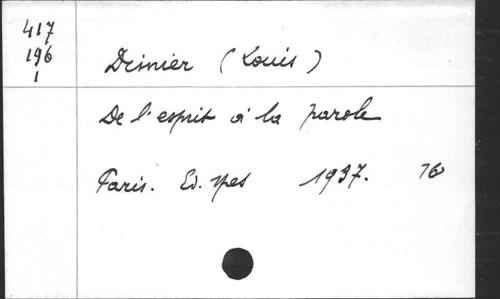 417
196
1
Dimier (Louis)
De l'esprit à la parole
Paris. Ed. Spes 1937. 76